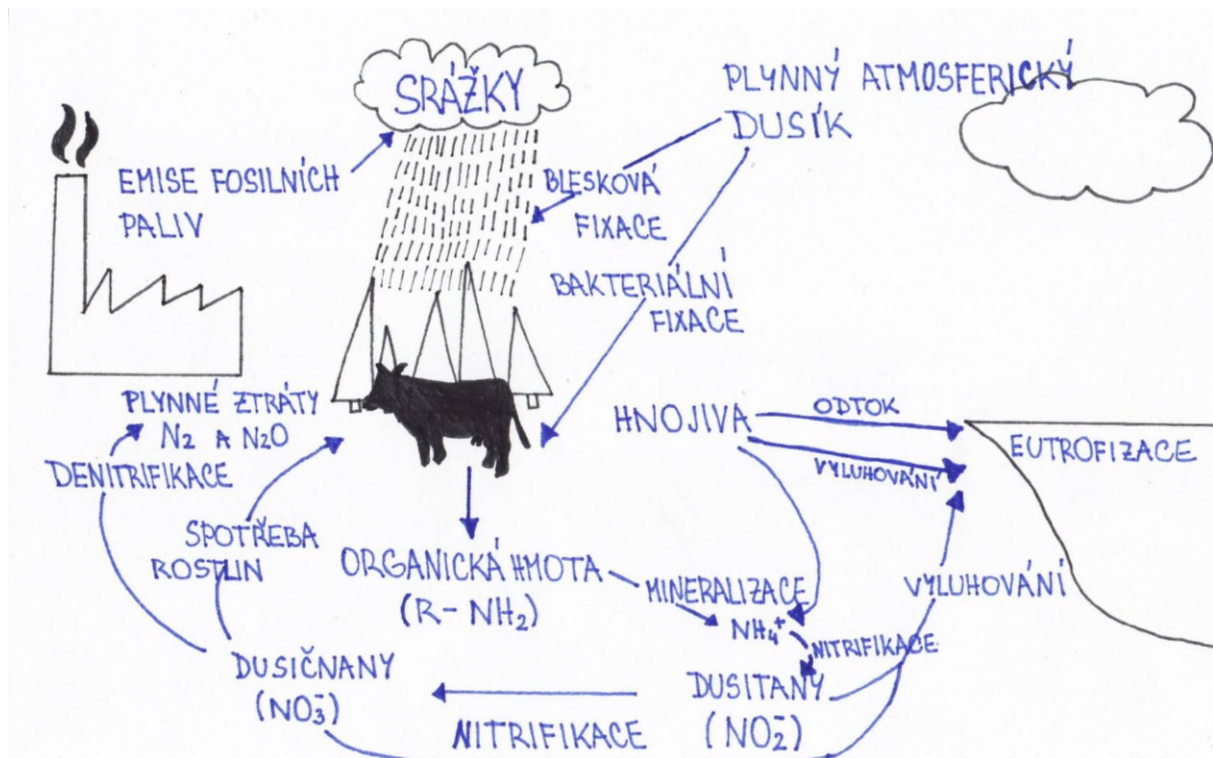 SRÁŽKY
PLYNNÝ ATMOSFERICKÝ
DUSÍK
EMISE FOSILNÍCH
PALIV
BLESKOVÁ
FIXACE
BAKTERIÁLNÍ
FIXACE
PLYNNÉ ZTRÁTY
N₂ A N₂O
DENITRIFIKACE
SPOTŘEBA
ROSTLIN
HNOJIVA
ODTOK
VYLUHOVÁNÍ
EUTROFIZACE
ORGANICKÁ HMOTA
(R-NH₂)
MINERALIZACE
NH₄⁺
NITRIFIKACE
VYLUHOVÁNÍ
DUSIČNANY
(NO₃⁻)
NITRIFIKACE
DUSITANY
(NO₂⁻)